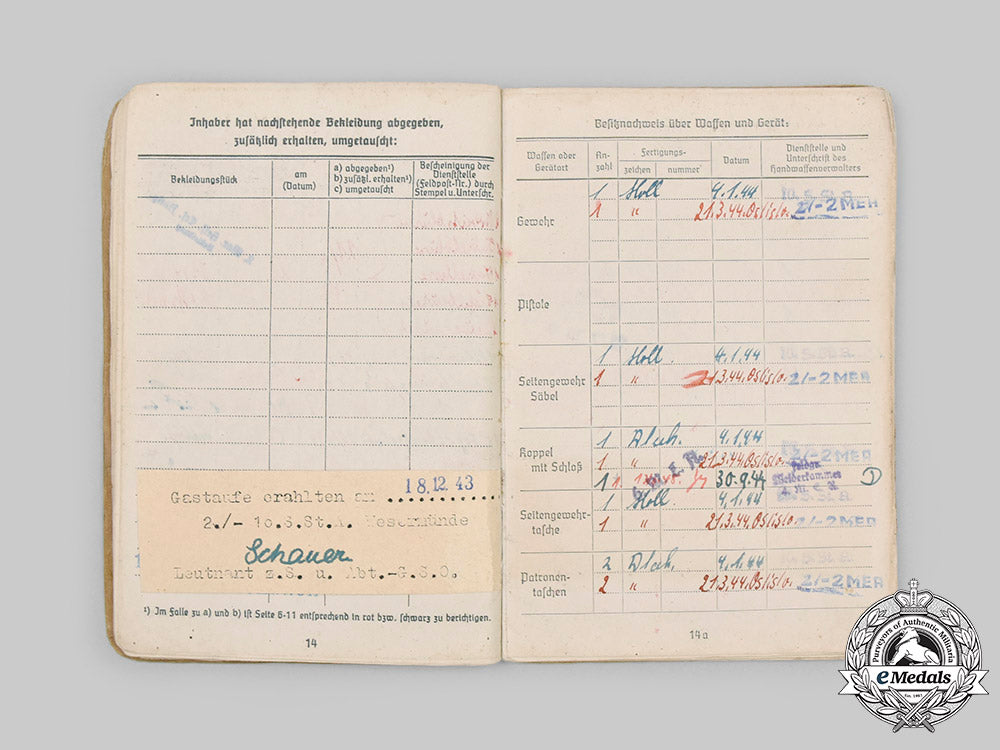 Inhaber hat nachstehende Bekleidung abgegeben,
zusätzlich erhalten, umgetauscht:
Bekleidungsstück
am
(Datum)
a) abgegeben¹)
b) zusätzl. erhalten¹)
c) umgetauscht
Bescheinigung der
Dienststelle
(Feldpost-Nr.) durch
Stempel u. Unterschr.
Gastaufe erahlten am ........... 18.12.43
2./- 10.S.St.A. Wesermünde
Schauer
Leutnant z.S. u. Abt.-G.S.O.
¹) Im Falle zu a) und b) ist Seite 6-11 entsprechend in rot bzw. schwarz zu berichtigen.
14
Besitznachweis über Waffen und Gerät:
Waffen oder
Gerätart
An-
zahl
Fertigungs-
zeichen nummer
Datum
Dienststelle und
Unterschrift des
Handwaffenverwalters
Gewehr
1 Holl 4.1.44 10.S.St.A.
1 " 21.3.44. 2/-2 MER
Pistole
Seitengewehr
Säbel
1 Holl. 4.1.44 10.S.St.A.
1 " 21.3.44. 2/-2 MER
Koppel
mit Schloß
1 4.1.44
1 " 21.3.44. 2/-2 MER
1 30.9.44
Seitengewehr-
tasche
1 Holl. 4.1.44
1 " 21.3.44. 2/-2 MER
Patronen-
taschen
2 4.1.44
2 " 21.3.44. 2/-2 MER
14a
Purveyors of Authentic Militaria
eMedals